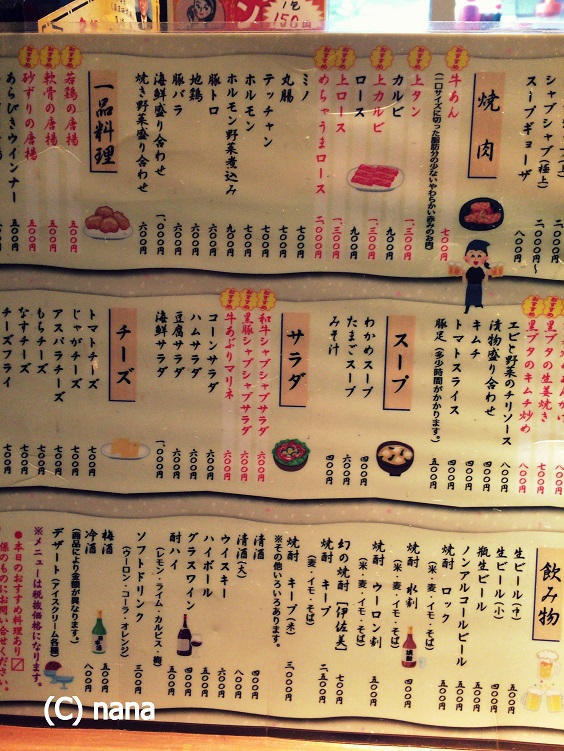 1包
150円
シャブシャブ(極上) 二、〇〇〇円〜
スープギョーザ 八〇〇円
焼肉
おすすめ 牛あん 七〇〇円
(一口サイズに切った脂肪分の少ないやわらかい赤みのお肉)
おすすめ 上タン 一、三〇〇円
カルビ 九〇〇円
おすすめ 上カルビ 一、三〇〇円
ロース 九〇〇円
おすすめ 上ロース 一、三〇〇円
おすすめ めちゃうまロース 二、〇〇〇円
ミノ 七〇〇円
丸腸 七〇〇円
テッチャン 七〇〇円
ホルモン 七〇〇円
ホルモン野菜煮込み 九〇〇円
豚トロ 六〇〇円
地鶏 六〇〇円
豚バラ 六〇〇円
海鮮盛り合わせ 一、〇〇〇円
焼き野菜盛り合わせ 六〇〇円
一品料理
おすすめ 若鶏の唐揚 五〇〇円
おすすめ 軟骨の唐揚 五〇〇円
おすすめ 砂ずりの唐揚 五〇〇円
あらびきウインナー 五〇〇円
おすすめ 黒ブタの生姜焼き 七〇〇円
おすすめ 黒ブタのキムチ炒め 八〇〇円
エビと野菜のチリソース 八〇〇円
漬物盛り合わせ 四〇〇円
キムチ 四〇〇円
トマトスライス 四〇〇円
豚足(多少時間がかかります。) 五〇〇円
スープ
わかめスープ 四〇〇円
たまごスープ 四〇〇円
みそ汁
サラダ
おすすめ 和牛シャブシャブサラダ 六〇〇円
おすすめ 黒豚シャブシャブサラダ 六〇〇円
おすすめ 牛あぶりマリネ 六〇〇円
コーンサラダ 六〇〇円
ハムサラダ 六〇〇円
豆腐サラダ 六〇〇円
海鮮サラダ 一、〇〇〇円
チーズ
トマトチーズ 七〇〇円
じゃがチーズ 七〇〇円
アスパラチーズ 七〇〇円
もちチーズ 七〇〇円
なすチーズ 七〇〇円
チーズフライ 七〇〇円
飲み物
生ビール(中) 五〇〇円
生ビール(小) 四〇〇円
瓶生ビール
ノンアルコールビール
焼酎 ロック
(米・麦・イモ・そば)
焼酎 水割 四〇〇円
(米・麦・イモ・そば)
焼酎 ウーロン割
(米・麦・イモ・そば)
幻の焼酎[伊佐美] 七〇〇円
焼酎 キープ
(麦・イモ・そば)
焼酎 キープ(米) 三、〇〇〇円
※その他いろいろあります。
清酒 四〇〇円
清酒(大) 八〇〇円
ウイスキー
ハイボール
グラスワイン
酎ハイ
(レモン・ライム・カルピス・梅)
ソフトドリンク 三〇〇円
(ウーロン・コーラ・オレンジ)
梅酒 五〇〇円
冷酒 八〇〇円
(商品により金額が異なります。)
デザート(アイスクリーム各種)
※メニューは税抜価格になります。
●本日のおすすめ料理あり
係のものにお問い合せください。
(C) nana